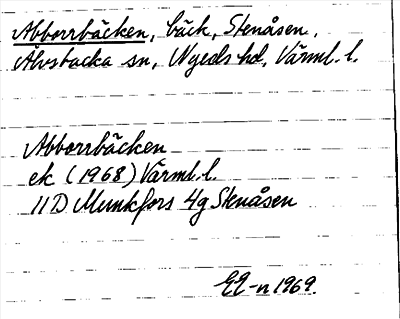 Abborrbäcken, bäck, Stenåsen,
Älvsbacka sn, Nyeds hd, Värml. l.
Abborrbäcken
ek (1968) Värml. l.
11D Munkfors 4g Stenåsen
EE-n 1969.